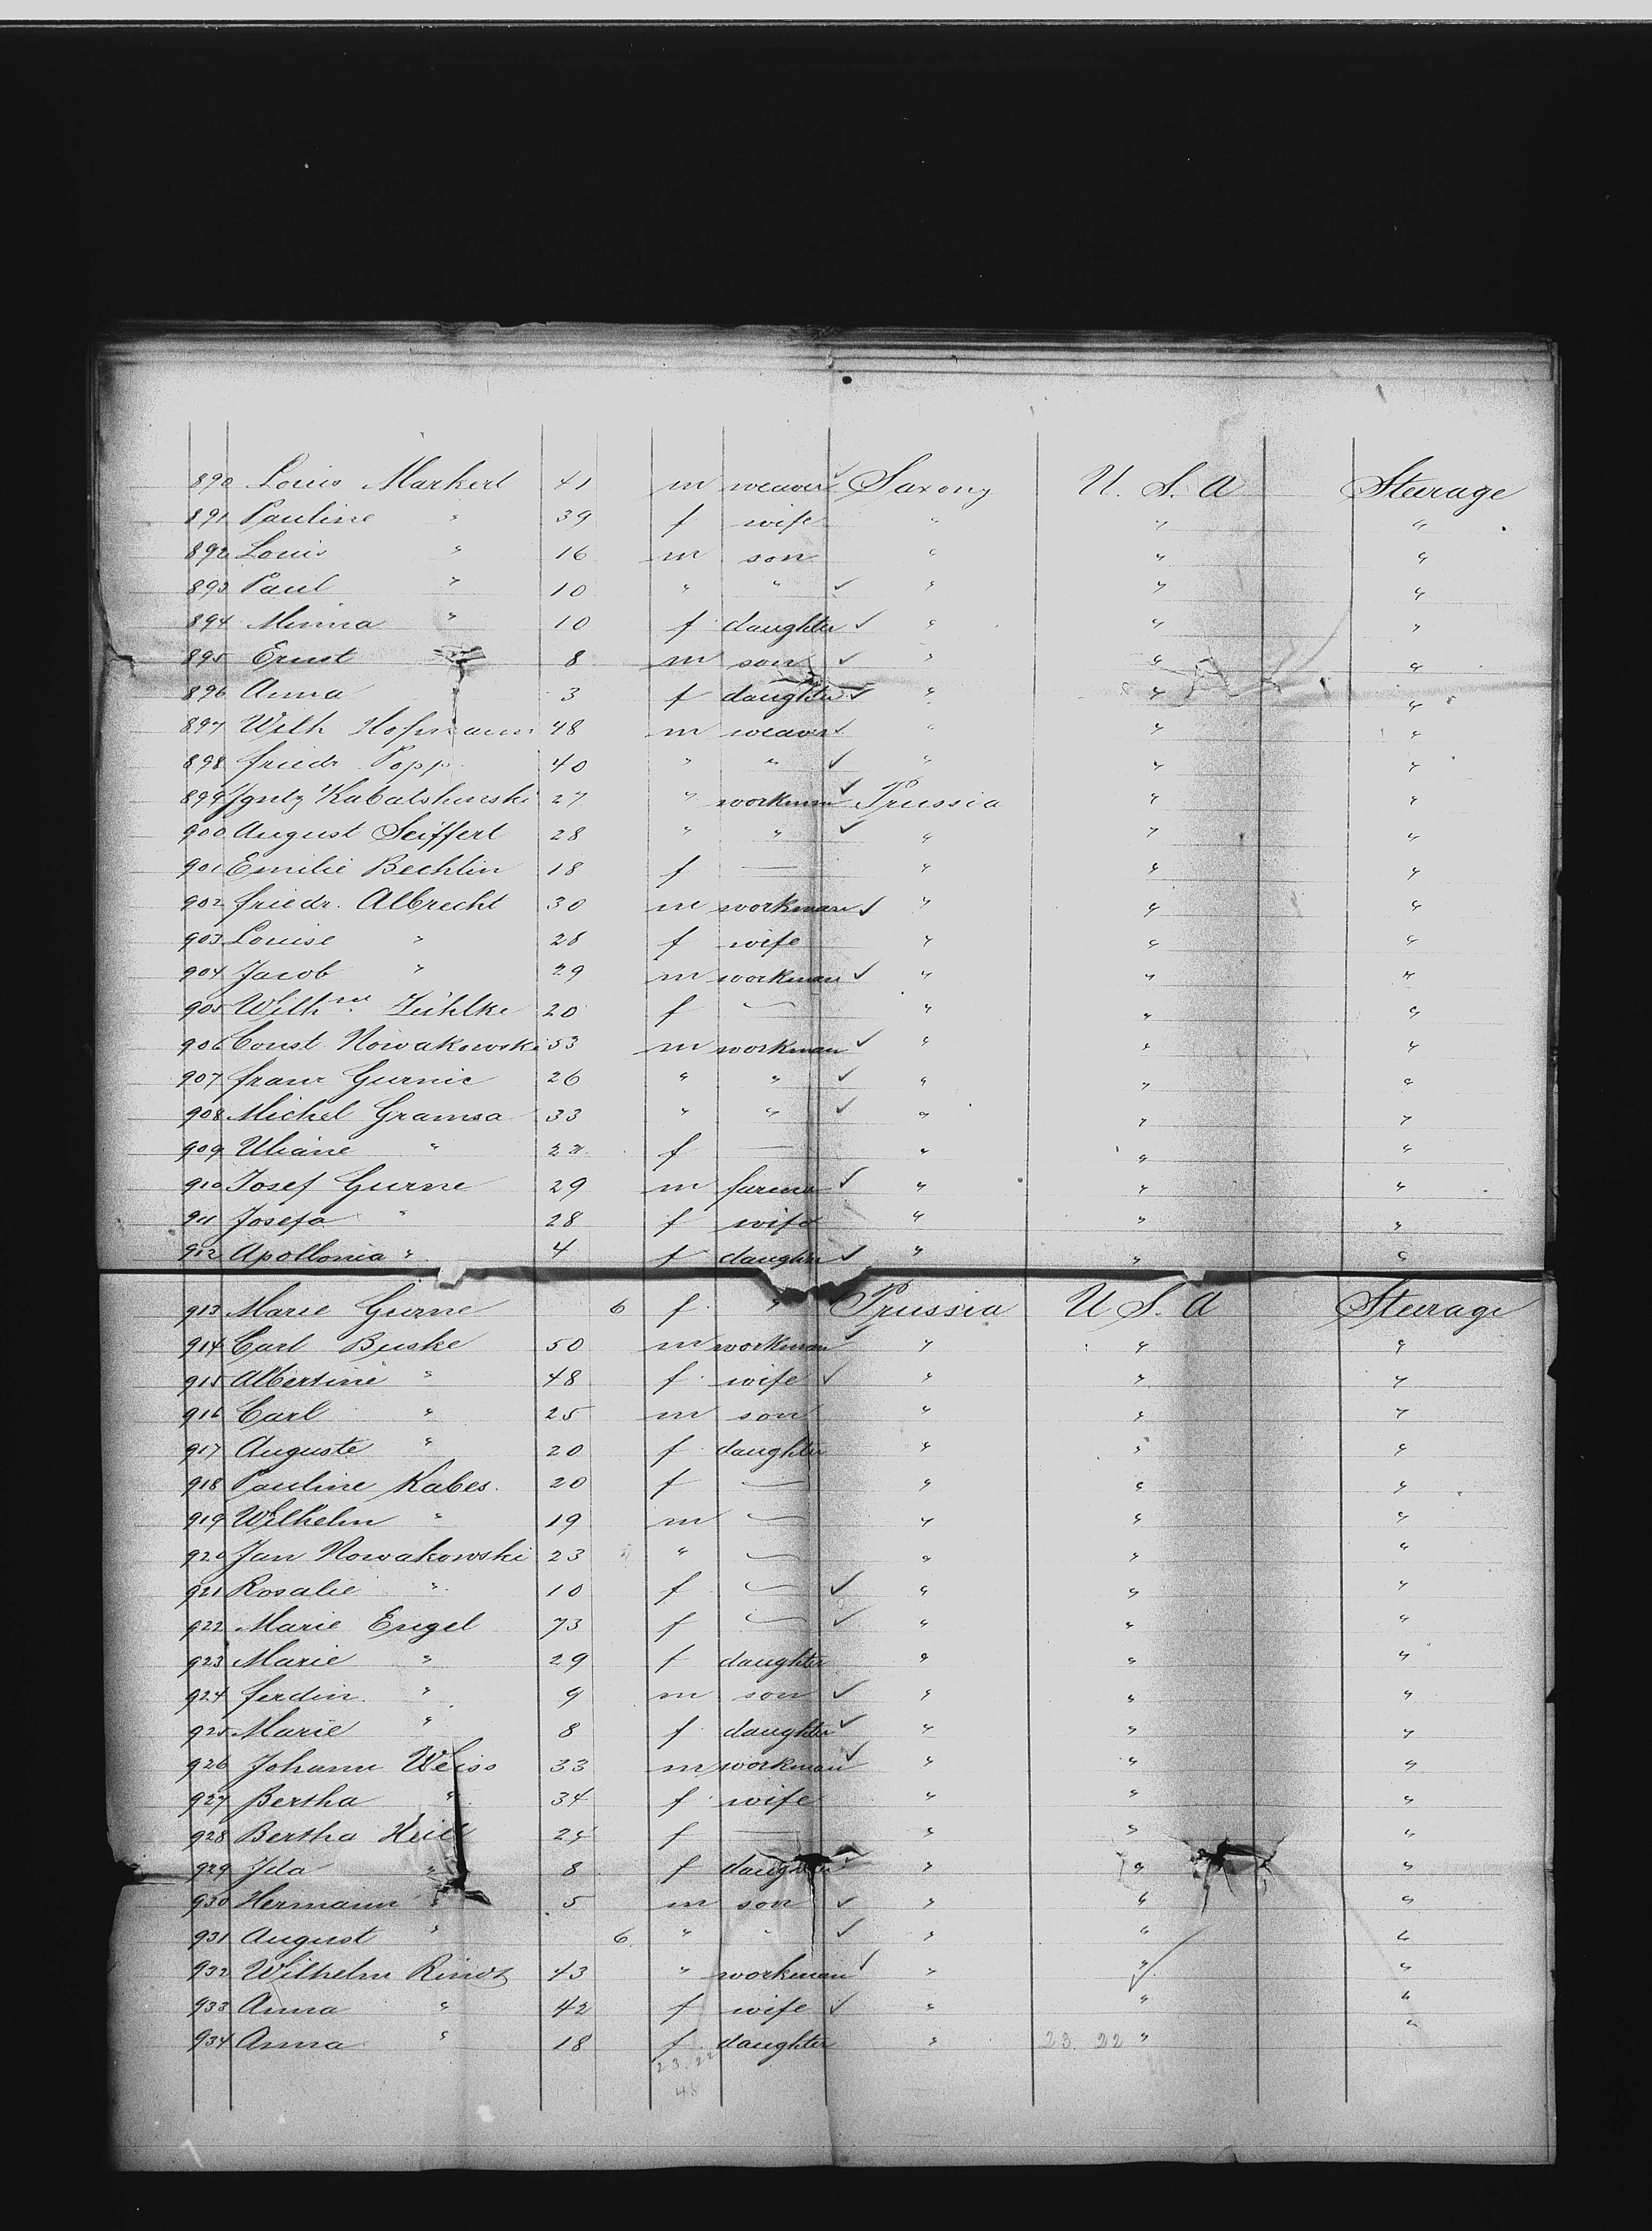 890 Louis Markert 41 m weaver ✓ Saxony U. S. A Steerage
891 Pauline " 39 f wife " " "
892 Louis " 16 m son " " "
893 Paul " 10 " " ✓ " " "
894 Minna " 10 f daughter ✓ " " "
895 Ernst " 8 m son ✓ " " "
896 Anna " 3 f daughter ✓ " " "
897 Wilh Hofmann 48 m weaver ✓ " " "
898 friedr. Popp 40 " " ✓ " " "
899 Igntz Kabatshinski 27 " workman ✓ Prussia " "
900 August Seiffert 28 " " ✓ " " "
901 Emilie Bechlin 18 f — " " "
902 friedr. Albrecht 30 m workman ✓ " " "
903 Louise " 28 f wife " " "
904 Jacob " 29 m workman ✓ " " "
905 Wilhne Zühlke 20 f — " " "
906 Const. Nowakowski 53 m workman ✓ " " "
907 franz Gurnic 26 " " ✓ " " "
908 Michel Gramsa 33 " " ✓ " " "
909 Uliane " 22 f — " " "
910 Josef Gurne 29 m farmer ✓ " " "
911 Josefa " 28 f wife " " "
912 Apollonia " 4 f daughter ✓ " " "
913 Marie Gurne 6 f " Prussia U S. A Steerage
914 Carl Buske 50 m workman ✓ " " "
915 Albertine " 48 f wife ✓ " " "
916 Carl " 25 m son " " "
917 Auguste " 20 f daughter " " "
918 Pauline Kabes. 20 f — " " "
919 Wilhelm " 19 m — " " "
920 Jan Nowakowski 23 " — " " "
921 Rosalie " 10 f — ✓ " " "
922 Marie Engel 73 f — ✓ " " "
923 Marie " 29 f daughter " " "
924 ferdin. " 9 m son ✓ " " "
925 Marie " 8 f daughter ✓ " " "
926 Johann Weiss 33 m workman ✓ " " "
927 Bertha " 34 f wife " " "
928 Bertha 24 f — " " "
929 Ida " 8 f daughter ✓ " " "
930 Hermann " 5 m son ✓ " " "
931 August " 6 " " ✓ " " "
932 Wilhelm 43 " workman ✓ " " "
933 Anna " 42 f wife ✓ " " "
934 Anna " 18 f daughter " 23. 22 " "
23. 22
45